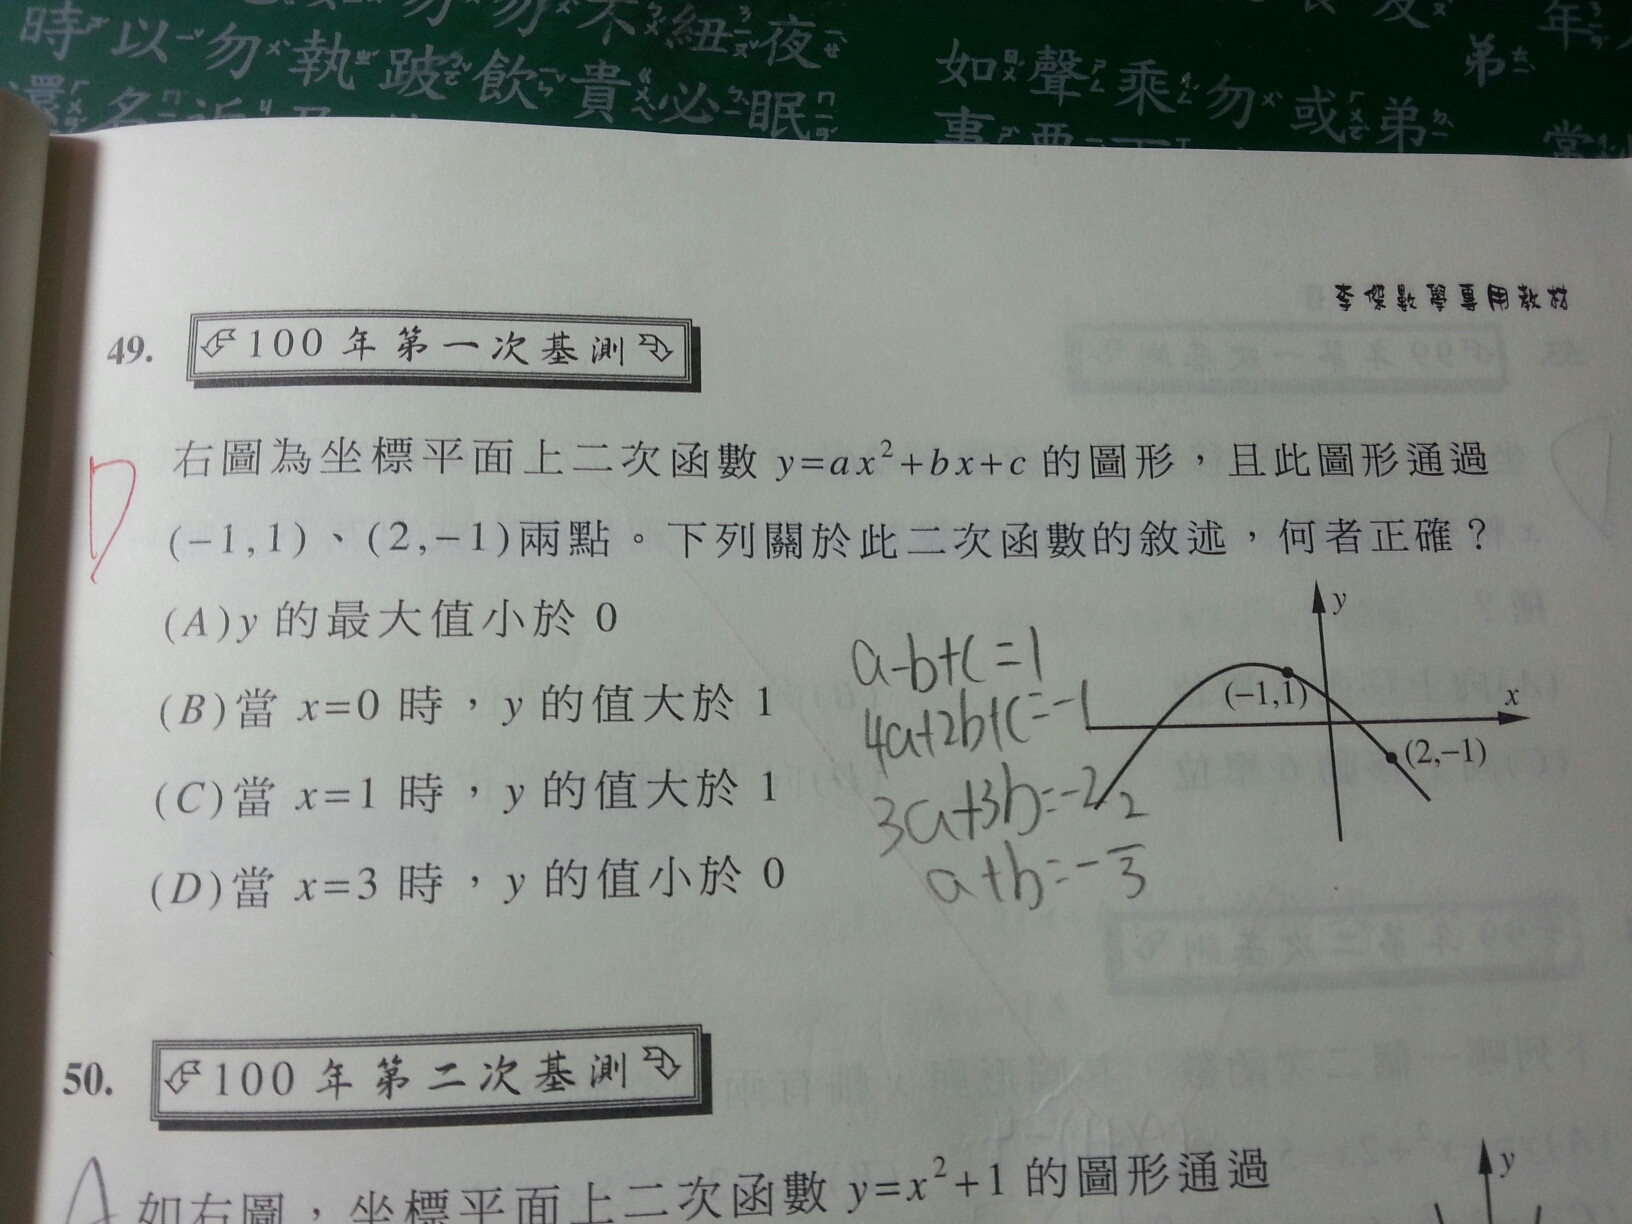 時以勿執跛飲貴必眠
如聲乘勿或弟
弟
年
李傑數學專用教材
49. 100年第一次基測
右圖為坐標平面上二次函數 y=ax²+bx+c 的圖形，且此圖形通過
(-1,1)、(2,-1)兩點。下列關於此二次函數的敘述，何者正確？
(A)y 的最大值小於 0
(B)當 x=0 時，y 的值大於 1
(C)當 x=1 時，y 的值大於 1
(D)當 x=3 時，y 的值小於 0
D
a-b+c=1
4a+2b+c=-1
3a+3b=-2
a+b=-2/3
y
x
(-1,1)
(2,-1)
50. 100年第二次基測
A
如右圖，坐標平面上二次函數 y=x²+1 的圖形通過
y